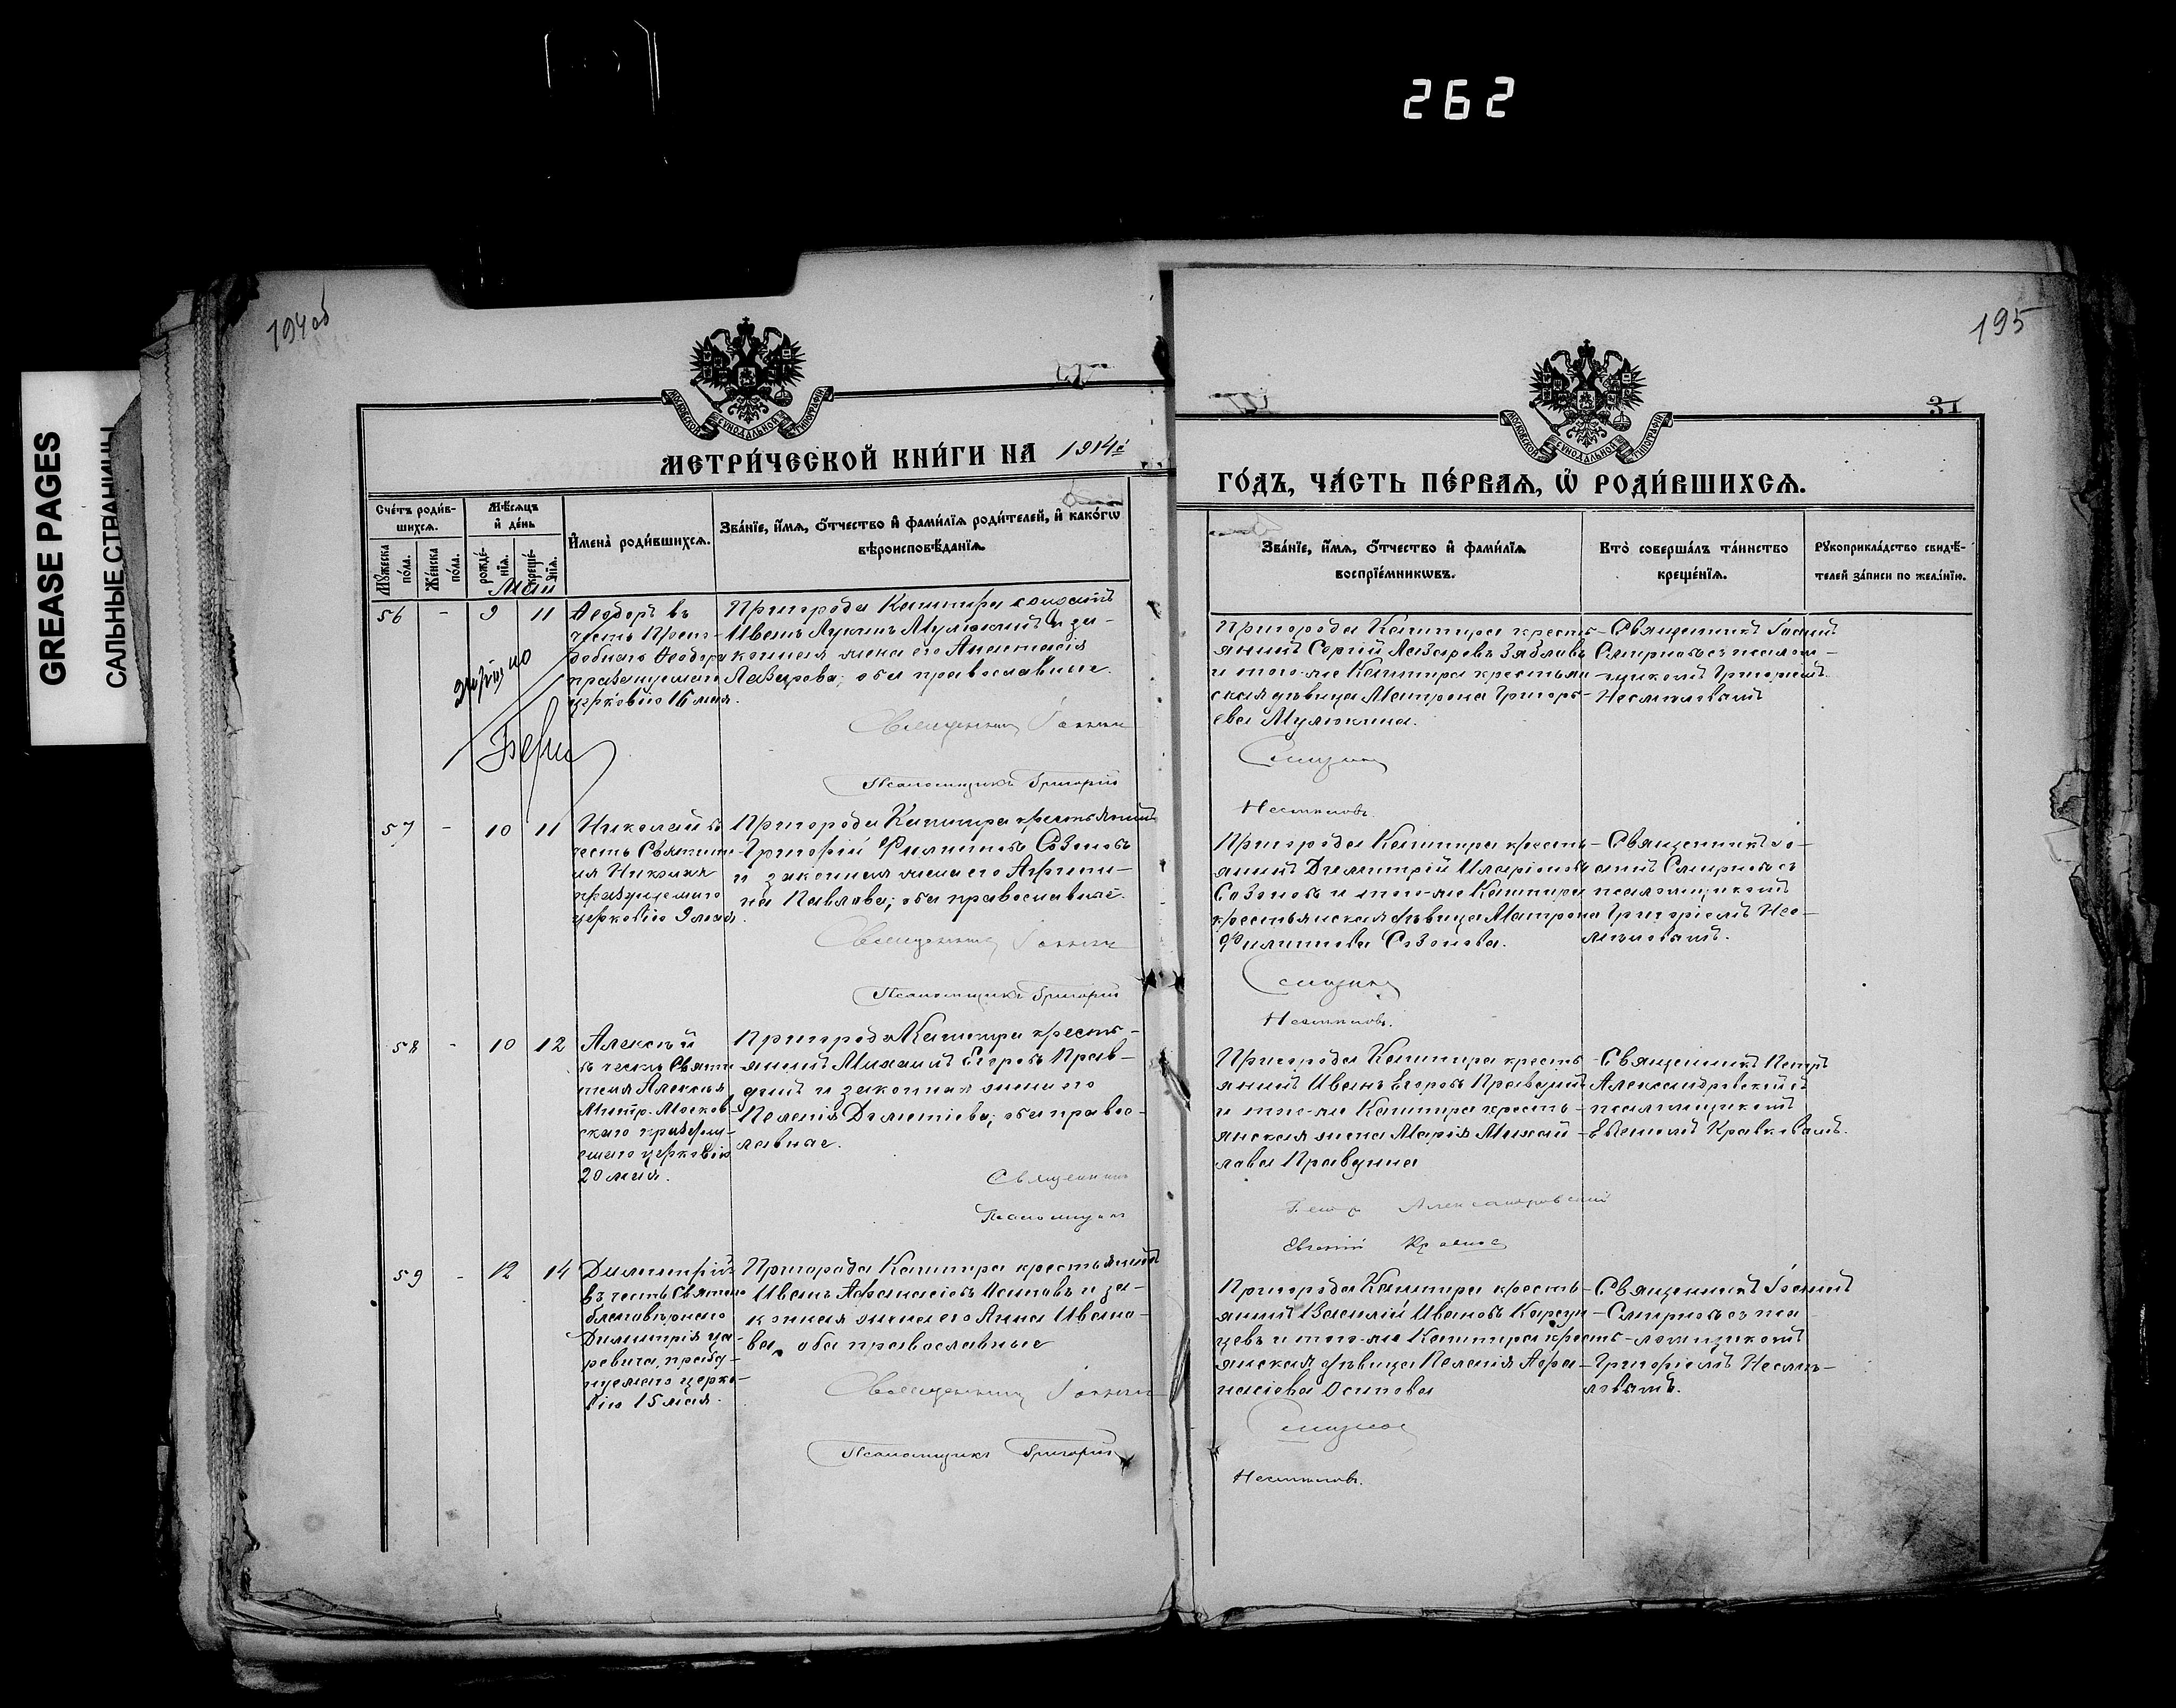 262
GREASE PAGES
САЛЬНЫЕ СТРАНИЦЫ
194об
195
31
МЕТРИ́ЧЕСКОЙ КНИ́ГИ НА 1914й
ГО́ДЪ, ЧА́СТЬ ПЕ́РВАѦ, Ѡ҆ РОДИ́ВШИХСѦ.
Сче́тъ роди́в-
шихсѧ.
Мѣ́сѧцъ
и҆ де́нь
Мꙋ́жеска
по́ла.
Же́нска
по́ла.
рожде́-
нїѧ.
креще́-
нїѧ.
И҆мена̀ роди́вшихсѧ.
Зва́нїе, и҆́мѧ, ѻ҆́тчество и҆ фами́лїѧ роди́телей, и҆ како́гѡ
вѣроисповѣ́данїѧ.
Зва́нїе, и҆́мѧ, ѻ҆́тчество и҆ фами́лїѧ
воспрїе́мникѡвъ.
Кто̀ соверша́лъ та́инство
креще́нїѧ.
Рꙋкоприкла́дство свидѣ́-
телей за́писи по жела́нїю.
Май
56 - 9 11
Ѳеодоръ въ
честь Преп-
добнаго Ѳеодора
празднуемаго
церковію 16 мая.
Пригорода Кашпира солдатъ
Иванъ Лукинъ Мулюкинъ и за-
конная жена его Анастасія
Лазарева; оба православные.
Священникъ Іоаннъ
Псаломщикъ Григорій
Пригорода Кашпира кресть-
янинъ Сергій Лазаревъ Зябловъ
и того-же Кашпира крестьян
ская дѣвица Матрона Григорь-
ева Мулюкина.
Смирновъ
Несмѣловъ.
Священникъ Іоаннъ
Смирновъ съ псалом-
щикомъ Григоріемъ
Несмѣловымъ
57 - 10 11
Николай въ
честь Святите-
ля Николая
празднуемаго
церковію 9 мая.
Пригорода Кашпира крестьянинъ
Григорій Филиповъ Созоновъ
и законная жена его Агрипи-
на Павлова; оба православные.
Священникъ Іоаннъ
Псаломщикъ Григорій
Пригорода Кашпира кресть-
янинъ Димитрій Иларіоновъ
Созоновъ и того-же Кашпира
крестьянская дѣвица Матрона
Филиппова Созонова.
Смирновъ
Несмѣловъ.
Священникъ Іо-
аннъ Смирновъ съ
псаломщикомъ
Григоріемъ Нес-
мѣловымъ.
58 - 10 12
Алексѣй
въ честь Святи
теля Алексѣя
Митр. Москов-
скаго праздну-
емаго церковію
20 мая.
Пригорода Кашпира кресть-
янинъ Михаилъ Егоровъ Прав-
динъ и законная жена его
Пелагія Дементіева; оба правос-
лавные.
Священникъ
Псаломщикъ
Пригорода Кашпира кресть
янинъ Иванъ Егоровъ Правдинъ
и того-же Кашпира кресть-
янская жена Марія Михай-
лова Правдина
Петръ Александровскій
Евгеній Кравковъ
Священникъ Петръ
Александровскій съ
псаломщикомъ
Евгеніемъ Кравковымъ.
59 - 12 14
Димитрій
въ честь Святаго
благовѣрнаго
Димитрія ца-
ревича, праздн-
уемаго церко-
вію 15 мая.
Пригорода Кашпира крестьянинъ
Иванъ Аѳанасіевъ Осиповъ и за-
конная жена его Анна Ивано-
ва, оба православные
Священникъ Іоаннъ
Псаломщикъ Григорій
Пригорода Кашпира кресть-
янинъ Василій Ивановъ
и того-же Кашпира кресть-
янская дѣвица Пелагія Аѳа-
насіева Осипова
Смирновъ
Несмѣловъ.
Священникъ Іоаннъ
Смирновъ съ пса
ломщикомъ
Григоріемъ Несмѣ-
ловымъ.